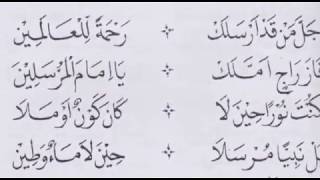 جَلَّ مَنْ قَدْ اَرْسَلَكْ ✧ رَحْمَةً لِلْعَالَمِيْنَ
فَازَ رَاجٍ اَمَّلَكْ ✧ يَا اِمَامَ الْمُرْسَلِيْنَ
كُنْتَ نُوْرًا حِيْنَ لَا ✧ كَانَ كَوْنٌ اَوْ مَلَا
بَلْ نَبِيًّا مُرْسَلَا ✧ حِيْنَ لَا مَاءٌ وَطِيْنٌ